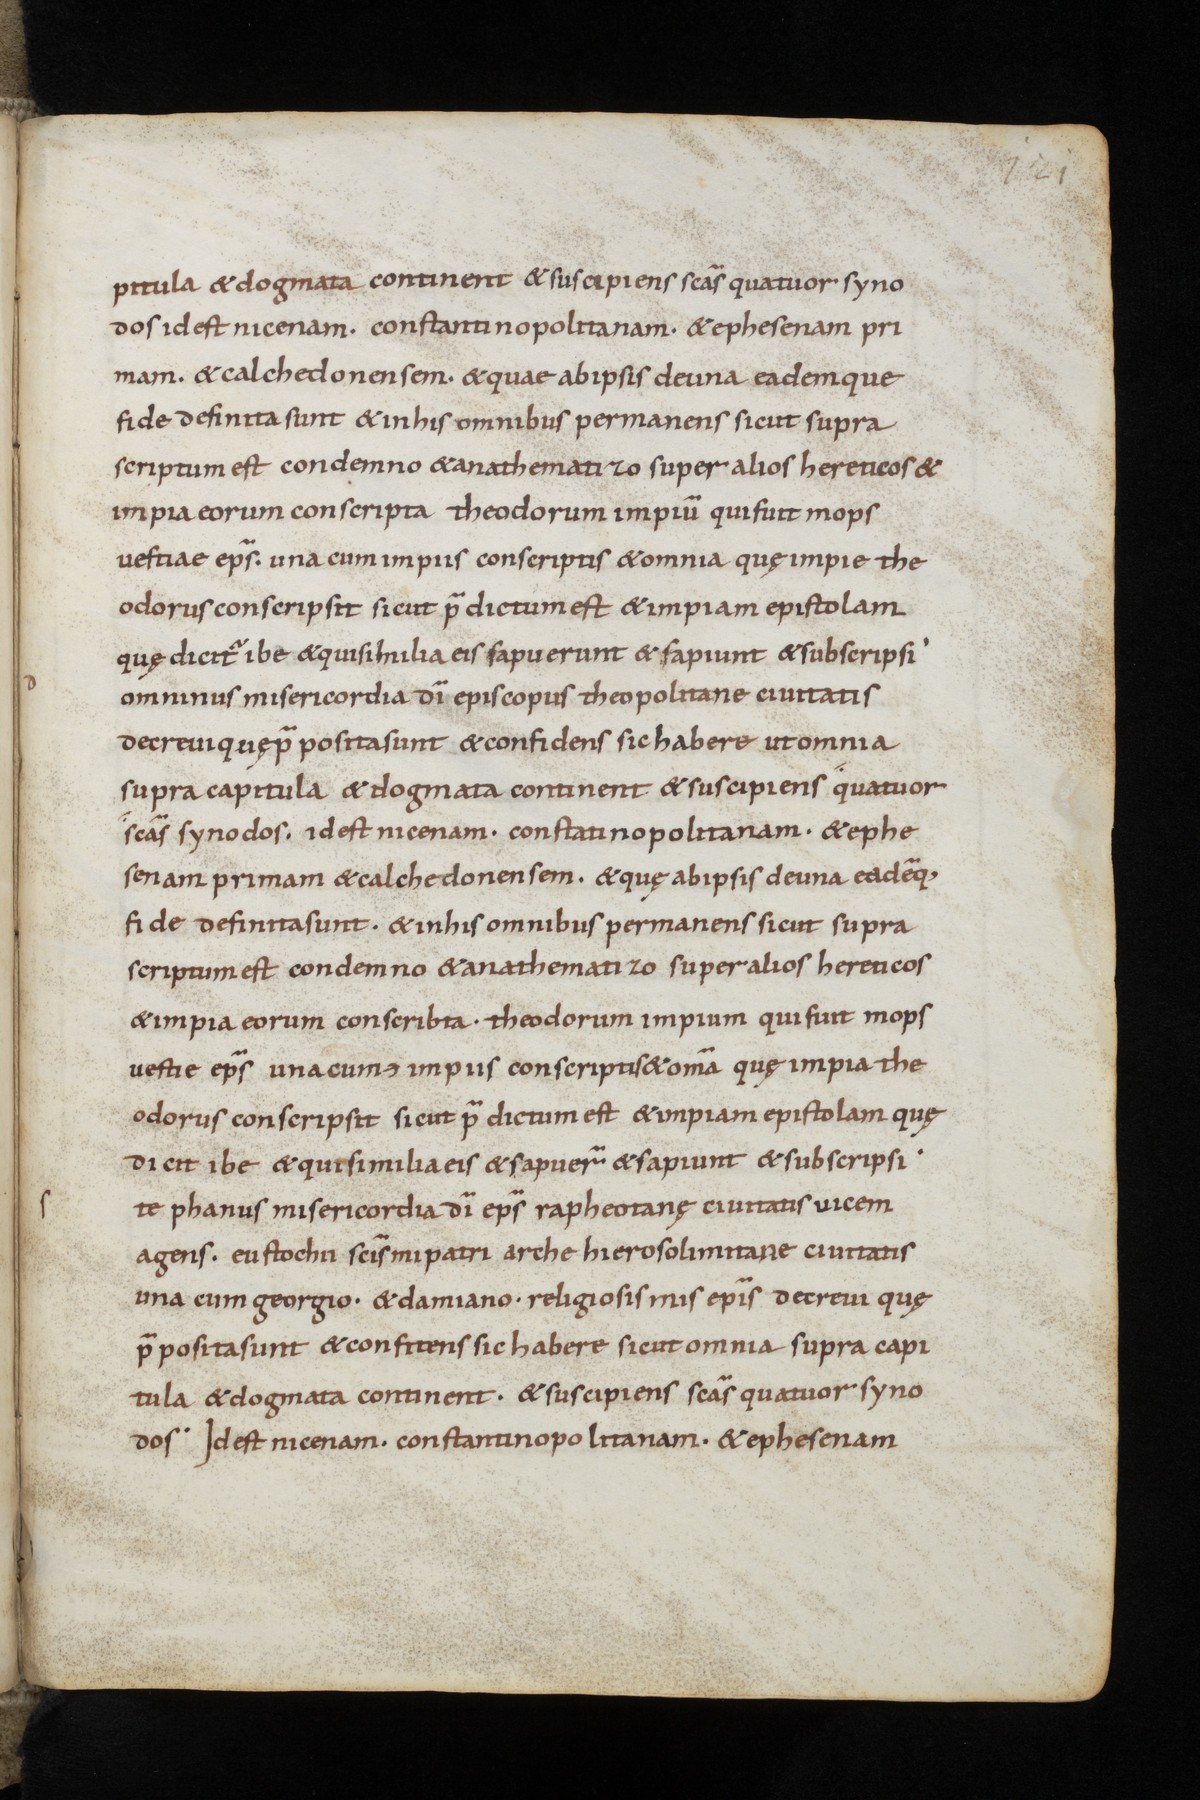 121
pitula & dogmata continent & suscipiens scās quatuor syno
dos id est nicenam. constantinopolitanam. & ephesenam pri
mam. & calchedonensem. & quae ab ipsis de una eademque
fide definita sunt & in his omnibus permanens sicut supra
scriptum est condemno & anathematizo super alios hereticos &
impia eorum conscripta theodorum impiū qui fuit mops
uestiae ep̄s. una cum impiis conscriptis & omnia quę impie the
odorus conscripsit sicut p̄ dictum est & impiam epistolam
quę dicit̄ ibe & qui similia eis sapuerunt & sapiunt & subscripsi
d
omninus misericordia dī episcopus theopolitane ciuitatis
decreui quę p̄ posita sunt & confidens sic habere ut omnia
supra capitula & dogmata continent & suscipiens quatuor
scās synodos. id est nicenam. constatinopolitanam. & ephe
senam primam & calchedonensem. & quę ab ipsis de una eadēq,
fide definita sunt. & in his omnibus permanens sicut supra
scriptum est condemno & anathematizo super alios hereticos
& impia eorum conscribta. theodorum impium qui fuit mops
uestie ep̄s una cum impiis conscriptis & om̄a quę impia the
odorus conscripsit sicut p̄ dictum est & impiam epistolam quę
dicit ibe & qui similia eis & sapuer̄ & sapiunt & subscripsi
s
tephanus misericordia dī ep̄s rapheotanę ciuitatis uicem
agens. eustochii scīsmi patriarche hierosolimitane ciuitatis
una cum georgio. & damiano. religiosismis ep̄is decreui quę
p̄ posita sunt & confitens sic habere sicut omnia supra capi
tula & dogmata continent. & suscipiens scās quatuor syno
dos. Id est nicenam. constantinopolitanam. & ephesenam